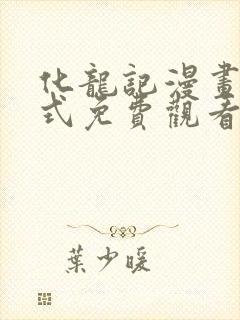 化龍記漫畫
式免費觀看
葉少暖